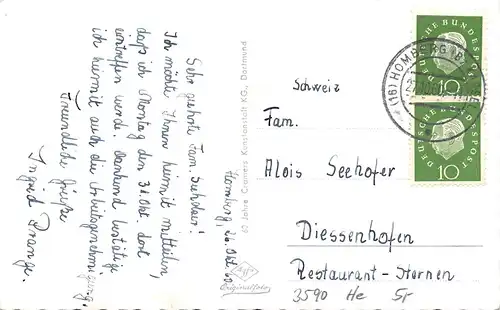 Homberg, 26. Okt. 60
Sehr geehrte Fam. Seehofer!
Ich möchte Ihnen hiermit mitteilen,
daß ich Montag den 31. Okt. dort
eintreffen werde. Dankend bestätige
ich hiermit auch die Arbeitsgenehmigung,
Freundliche Grüße
Ingrid Prange.
60 Jahre Cramers Kunstanstalt KG., Dortmund
Agfa
Originalfoto
DEUTSCHE BUNDESPOST
10
DEUTSCHE BUNDESPOST
10
(16) HOMBERG (BZ
Schweiz
Fam.
Alois Seehofer
Diessenhofen
Restaurant-Sternen
3590 He Sr